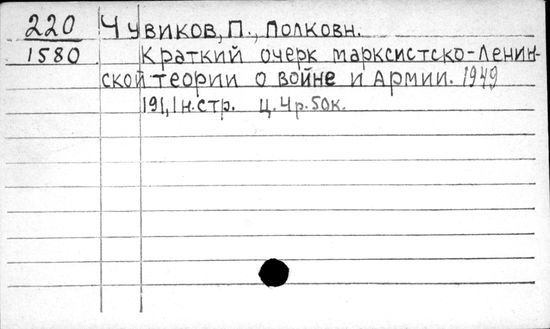 220 Чувиков, П., Полковн.
1580 Краткий очерк марксистско-Ленин-
ской теории о войне и Армии. 1949
191, 1 н. стр. Ц. 4 р. 50 к.